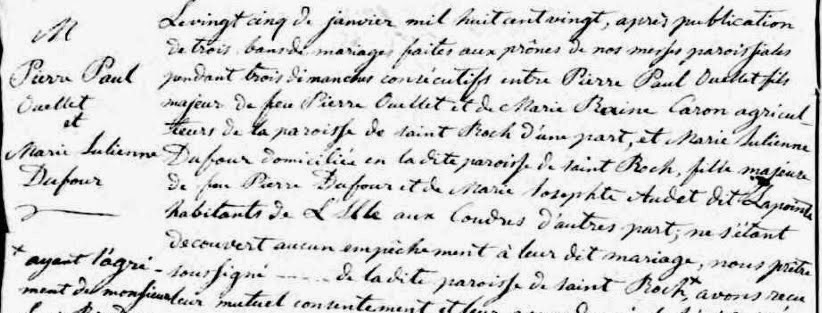 M
Pierre Paul
Ouellet
et
Marie Julienne
Dufour
Le vingt cinq de janvier mil huit cent vingt, après publication
de trois bans de mariages faites aux prônes de nos messes paroissiales
pendant trois dimanches consécutifs entre Pierre Paul Ouellet fils
majeur de feu Pierre Ouellet et de Marie Reine Caron agricul-
teurs de la paroisse de saint Roch d'une part, et Marie Julienne
Dufour domiciliée en la dite paroisse de saint Roch, fille majeure
de feu Pierre Dufour et de Marie Josephte Audet dit Lapointe
habitants de L'Isle aux Coudres d'autres part; ne s'étant
decouvert aucun empêchement à leur dit mariage, nous prêtre
soussigné ---- de la dite paroisse de saint Roch,+ avons recu
leur mutuel consentement et leur
+ ayant l'agré-
ment de monsieur